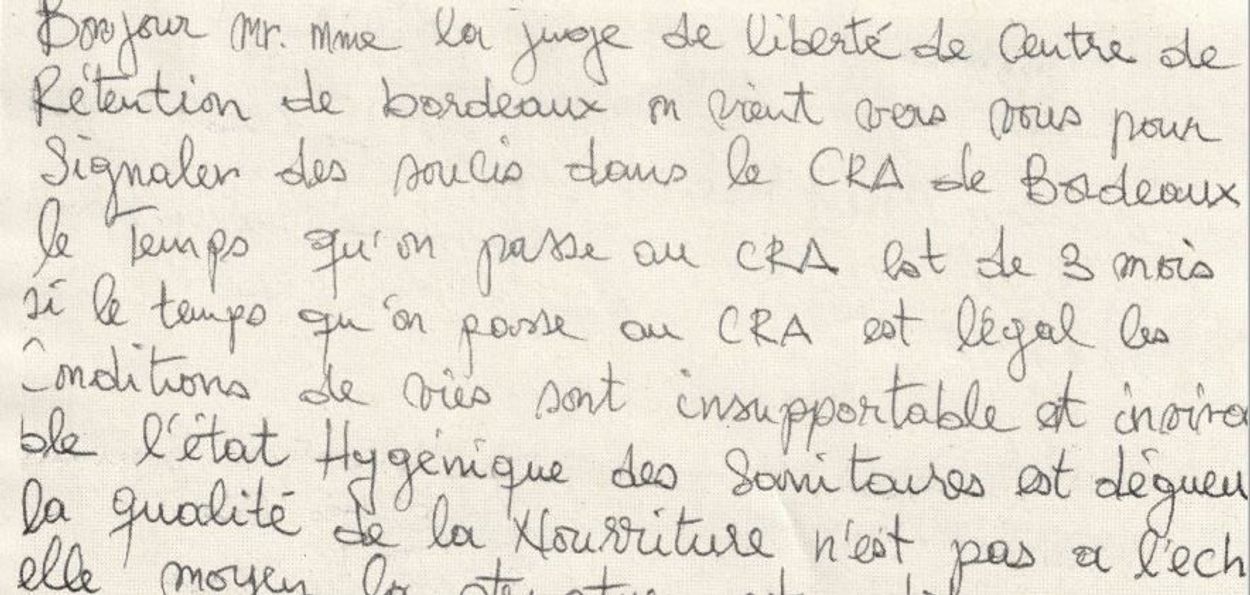 Bonjour Mr. Mme la juge de liberté de Centre de
Rétention de bordeaux on vient vers vous pour
Signaler des soucis dans le CRA de Bordeaux
le Temps qu'on passe au CRA est de 3 mois
si le temps qu'on passe au CRA est légal les
Conditions de viés sont insupportable et inviva
ble l'état Hygénique des Sanitaires est dégueu
la qualité de la Nourriture n'est pas a l'ech
elle moyen la